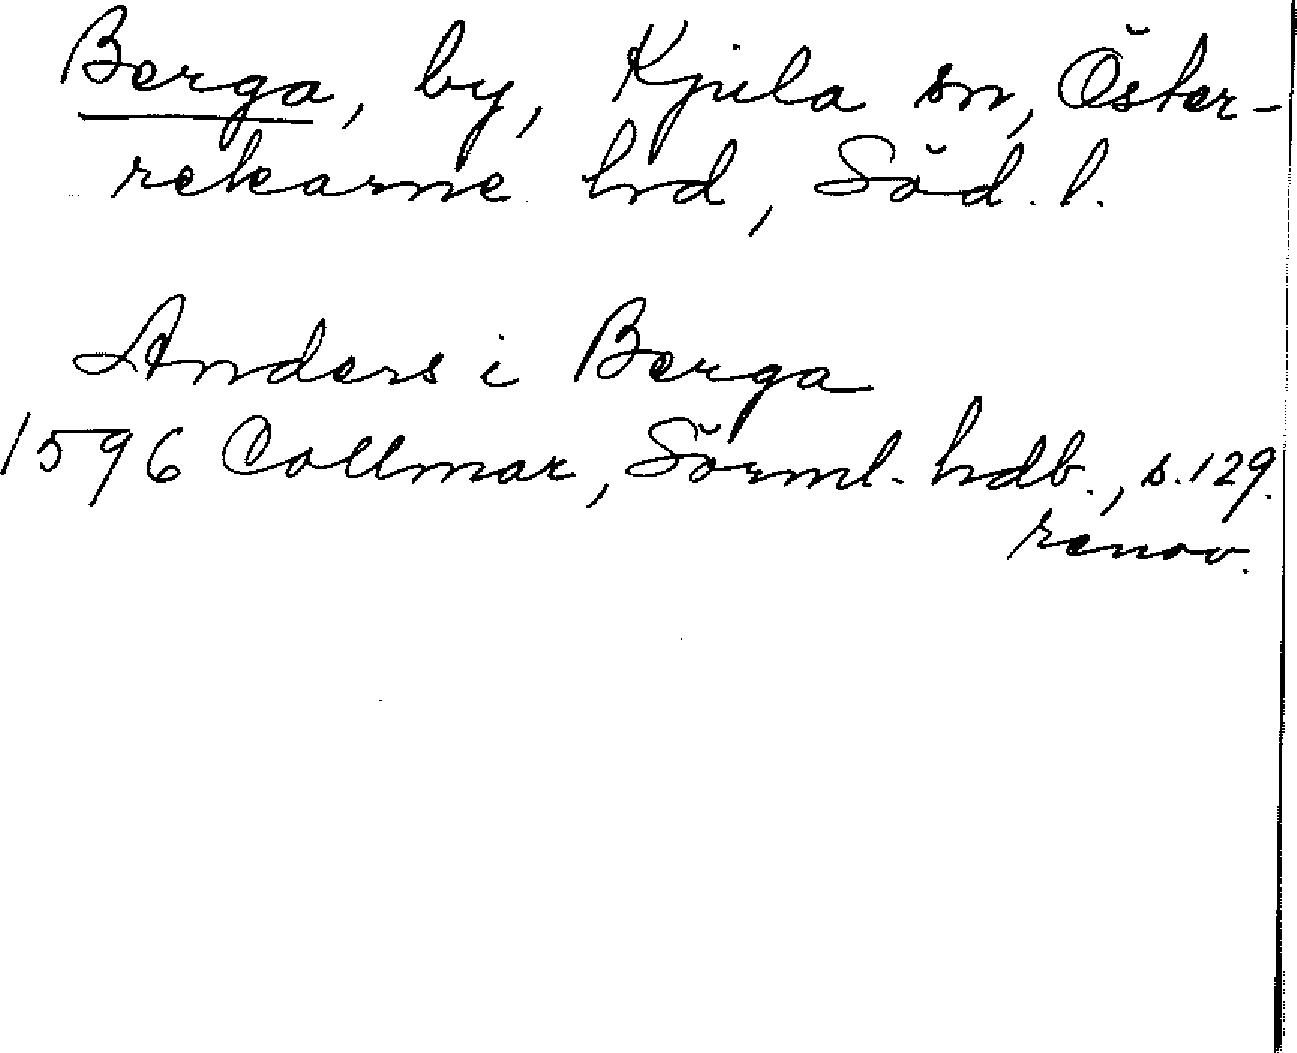 Berga, by, Kjula sn, Öster-
rekarne hrd, Söd. l.
Anders i Berga
1596 Collmar, Sörml. hdb., s. 129.
renov.